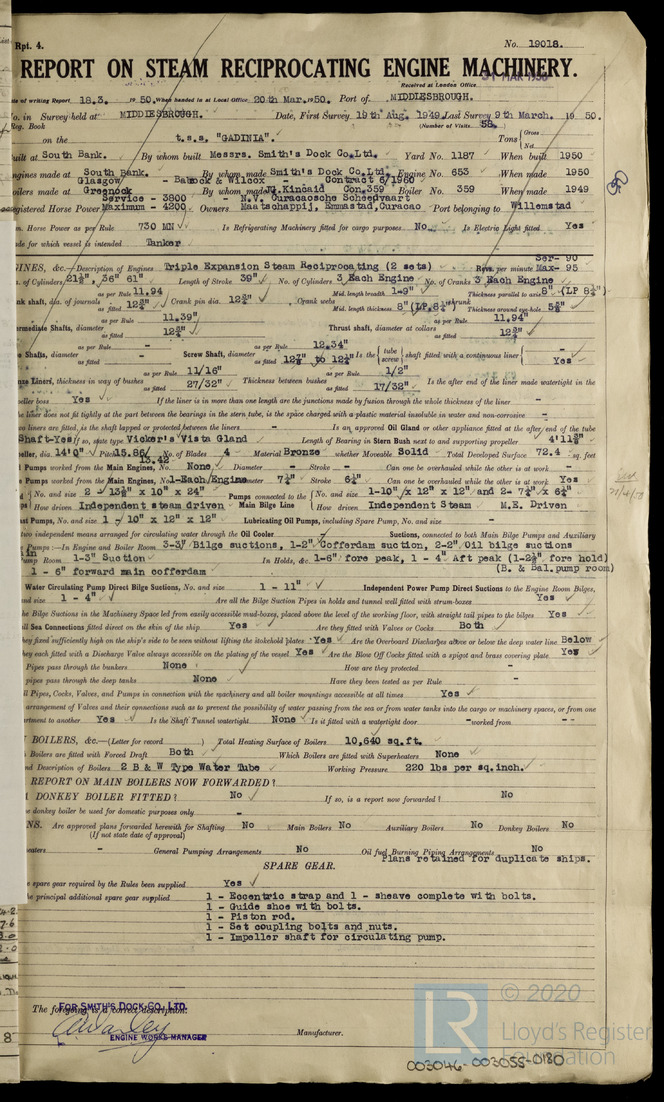 Rpt. 4. No. 19018.
REPORT ON STEAM RECIPROCATING ENGINE MACHINERY.
Received at London Office
of writing Report 18.3. 1950. When handed in at Local Office 20th Mar. 1950. Port of MIDDLESBROUGH.
in Survey held at MIDDLESBROUGH. Date, First Survey 19th Aug. 1949 Last Survey 9th March. 1950.
Reg. Book (Number of Visits 58.
on the t.s.s. "GADINIA". Tons { Gross Net
built at South Bank. By whom built Messrs. Smith's Dock Co.Ltd. Yard No. 1187 When built 1950
Engines made at South Bank. By whom made Smith's Dock Co.Ltd. Engine No. 653 When made 1950
Glasgow - Babcock & Wilcox - Contract 6/1960
Boilers made at Greenock By whom made J.G. Kincaid Con.359 Boiler No. 359 When made 1949
Service - 3800 - N.V. Curacaosche Scheepvaart
Registered Horse Power Maximum - 4200 Owners Maatschappij, Emmastad, Curacao Port belonging to Willemstad
Horse Power as per Rule 730 MN Is Refrigerating Machinery fitted for cargo purposes No. Is Electric Light fitted Yes
Trade for which vessel is intended Tanker
Ser- 90
ENGINES, &c.—Description of Engines Triple Expansion Steam Reciprocating (2 sets) Revs. per minute Max- 95
of Cylinders 21½", 36" 61" Length of Stroke 39" No. of Cylinders 3 Each Engine No. of Cranks 3 Each Engine
shaft, dia. of journals as per Rule 11.94 as fitted 12¾" Crank pin dia. 12¾" Crank webs Mid. length breadth 1-9" Thickness parallel to axis 8" (LP 8¼")
Mid. length thickness 8"(LP.8¼") shrunk Thickness around eye-hole 5⅝"
Intermediate Shafts, diameter as per Rule 11.39" as fitted 12¾" Thrust shaft, diameter at collars as per Rule 11.94" as fitted 12¾"
Shafts, diameter as per Rule - as fitted - Screw Shaft, diameter as per Rule 12.34" as fitted 12⅞" to 12¾" Is the { tube screw } shaft fitted with a continuous liner { - Yes
Bronze Liners, thickness in way of bushes as per Rule 11/16" as fitted 27/32" Thickness between bushes as per Rule 1/2" as fitted 17/32" Is the after end of the liner made watertight in the
propeller boss Yes If the liner is in more than one length are the junctions made by fusion through the whole length of the liner -
the liner does not fit tightly at the part between the bearings in the stern tube, is the space charged with a plastic material insoluble in water and non-corrosive -
two liners are fitted, is the shaft lapped or protected between the liners - Is an approved Oil Gland or other appliance fitted at the after end of the tube
Shaft-Yes If so, state type Vicker's Vista Gland Length of Bearing in Stern Bush next to and supporting propeller 4'11⅜"
Propeller, dia. 14'0" Pitch 15.86/13.42 No. of Blades 4 Material Bronze whether Moveable Solid Total Developed Surface 72.4 sq. feet
Pumps worked from the Main Engines, No. None Diameter - Stroke - Can one be overhauled while the other is at work -
Pumps worked from the Main Engines, No. 1-Each/Engine Diameter 7½" Stroke 6½" Can one be overhauled while the other is at work Yes
No. and size 2 - 13½" x 10" x 24" Pumps connected to the Main Bilge Line { No. and size 1-10" x 12" x 12" and 2- 7½" x 6½"
How driven Independent steam driven How driven Independent Steam M.E. Driven
Ballast Pumps, No. and size 1 - 10" x 12" x 12" Lubricating Oil Pumps, including Spare Pump, No. and size -
two independent means arranged for circulating water through the Oil Cooler - Suctions, connected to both Main Bilge Pumps and Auxiliary
Pumps:—In Engine and Boiler Room 3-3½" Bilge suctions, 1-2" Cofferdam suction, 2-2" Oil bilge suctions
Pump Room 1-3" Suction In Holds, &c. 1-6" fore peak, 1 - 4" Aft peak (1-2½" fore hold)
1 - 6" forward main cofferdam (B. & Bal. pump room)
Water Circulating Pump Direct Bilge Suctions, No. and size 1 - 11" Independent Power Pump Direct Suctions to the Engine Room Bilges,
and size 1 - 4" Are all the Bilge Suction Pipes in holds and tunnel well fitted with strum-boxes Yes
the Bilge Suctions in the Machinery Space led from easily accessible mud-boxes, placed above the level of the working floor, with straight tail pipes to the bilges Yes
all Sea Connections fitted direct on the skin of the ship Yes Are they fitted with Valves or Cocks Both
they fixed sufficiently high on the ship's side to be seen without lifting the stokehold plates Yes Are the Overboard Discharges above or below the deep water line Below
they each fitted with a Discharge Valve always accessible on the plating of the vessel Yes Are the Blow Off Cocks fitted with a spigot and brass covering plate Yes
Pipes pass through the bunkers None How are they protected -
pipes pass through the deep tanks None Have they been tested as per Rule -
all Pipes, Cocks, Valves, and Pumps in connection with the machinery and all boiler mountings accessible at all times Yes
arrangement of Valves and their connections such as to prevent the possibility of water passing from the sea or from water tanks into the cargo or machinery spaces, or from one
compartment to another Yes Is the Shaft Tunnel watertight None Is it fitted with a watertight door - worked from - -
BOILERS, &c.—(Letter for record ) Total Heating Surface of Boilers 10,640 sq.ft.
Boilers are fitted with Forced Draft Both Which Boilers are fitted with Superheaters None
and Description of Boilers 2 B & W Type Water Tube Working Pressure 220 lbs per sq.inch.
REPORT ON MAIN BOILERS NOW FORWARDED?
DONKEY BOILER FITTED? No If so, is a report now forwarded? No
the donkey boiler be used for domestic purposes only -
Are approved plans forwarded herewith for Shafting No Main Boilers No Auxiliary Boilers No Donkey Boilers No
(If not state date of approval)
Superheaters - General Pumping Arrangements No Oil fuel Burning Piping Arrangements No
Plans retained for duplicate ships.
SPARE GEAR.
spare gear required by the Rules been supplied Yes
the principal additional spare gear supplied 1 - Eccentric strap and 1 - sheave complete with bolts.
1 - Guide shoe with bolts.
1 - Piston rod.
1 - Set coupling bolts and nuts.
1 - Impeller shaft for circulating pump.
The foregoing is a correct description.
FOR SMITH'S DOCK CO. LTD.
ENGINE WORKS MANAGER
Manufacturer.
LR
© 2020
Lloyd's Register
Foundation
003046-003055-0180